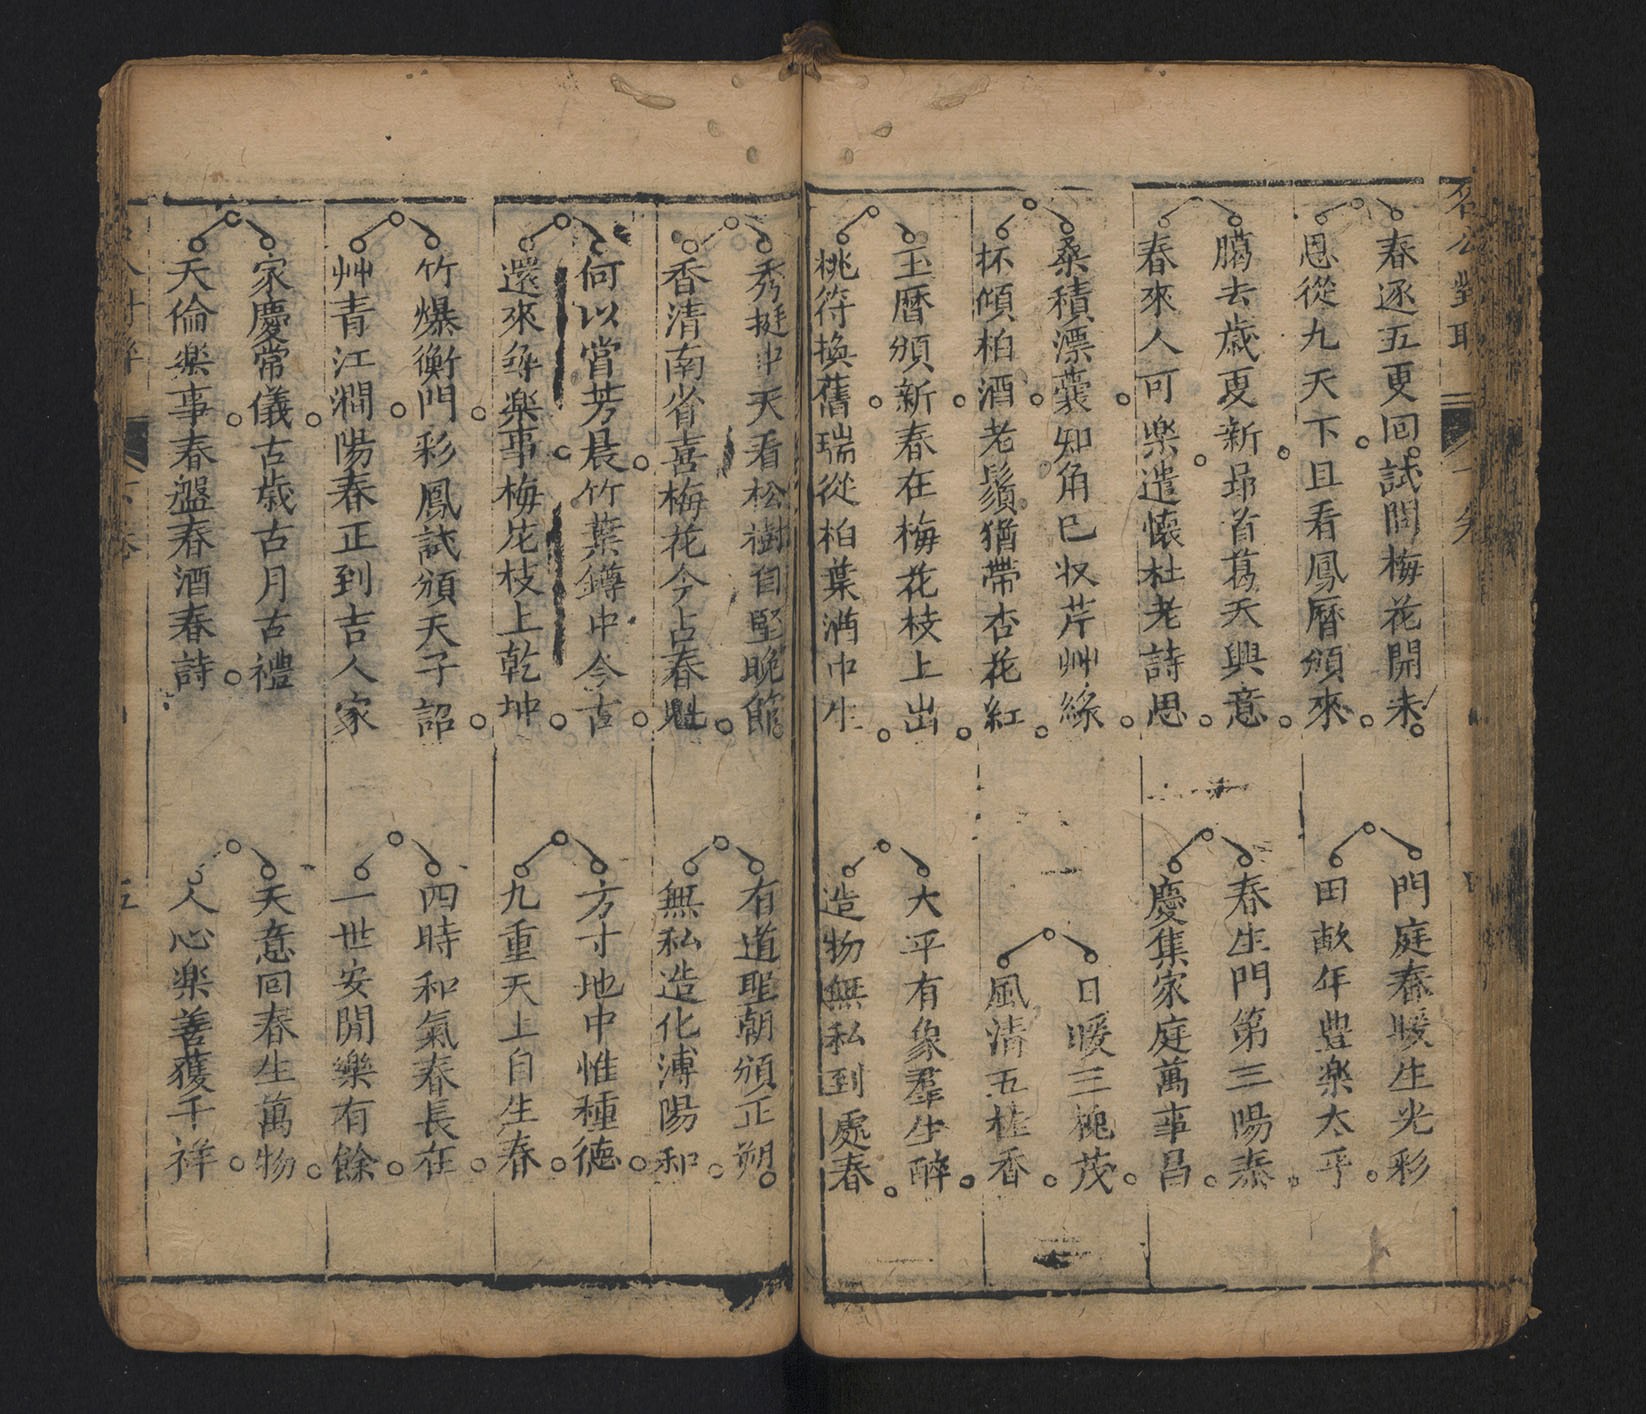 名公對聯
下卷
春逐五更回試問梅花開未
恩從九天下且看鳳曆頒來
臈去歲更新昻首葛天興意
春來人可楽遣懷杜老詩思
桑積漂囊知角已収芹艸緣
杯傾柏酒老鬚猶帶杏花紅
玉曆頒新春在梅花枝上出
桃符換舊瑞從柏葉酒中生
門庭春暖生光彩
田畝年豊楽太平
春生門第三陽泰
慶集家庭萬事昌
日暖三槐茂
風清五桂香
大平有象羣生醉
造物無私到處春
秀挺中天看松樹自堅晚節
香清南省喜梅花今占春魁
何以當芳晨竹葉鐏中今古
還來尋楽事梅花枝上乾坤
竹爆衡門彩鳳試頒天子詔
艸青江澗陽春正到吉人家
家慶常儀古歲古月古禮
天倫楽事春盤春酒春詩
有道聖朝頒正朔
無私造化溥陽和
方寸地中惟種德
九重天上自生春
四時和氣春長在
一世安閒樂有餘
天意回春生萬物
人心楽善獲千祥
下卷
五